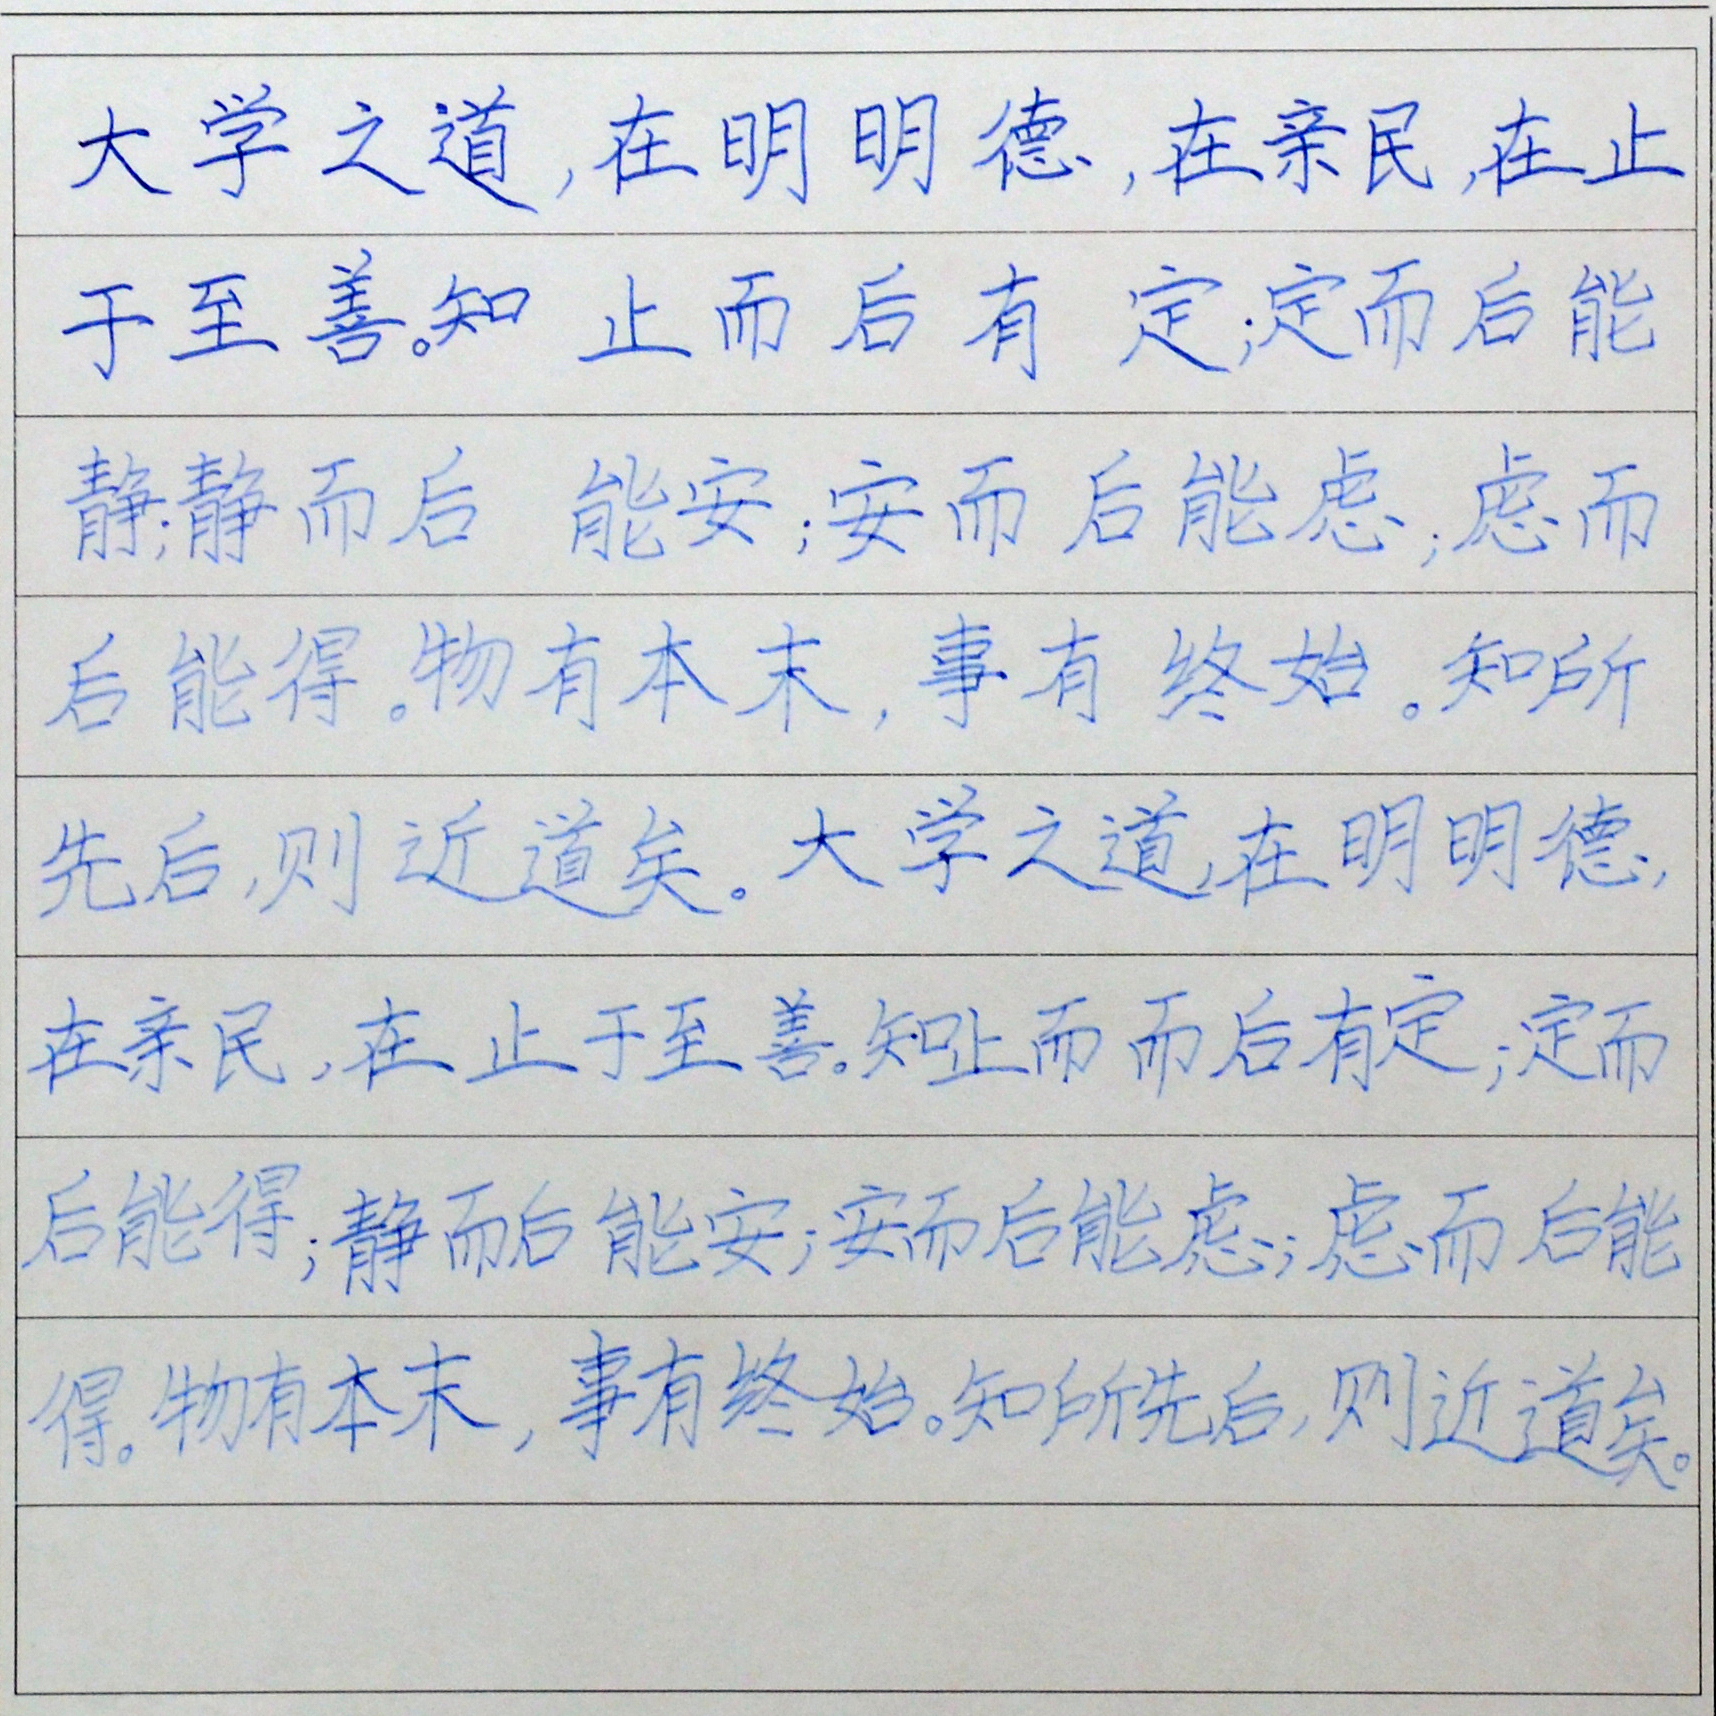 大学之道,在明明德,在亲民,在止
于至善。知止而后有定;定而后能
静;静而后能安;安而后能虑;虑而
后能得。物有本末,事有终始。知所
先后,则近道矣。大学之道,在明明德,
在亲民,在止于至善。知止而而后有定;定而
后能得;静而后能安;安而后能虑;虑而后能
得。物有本末,事有终始。知所先后,则近道矣。